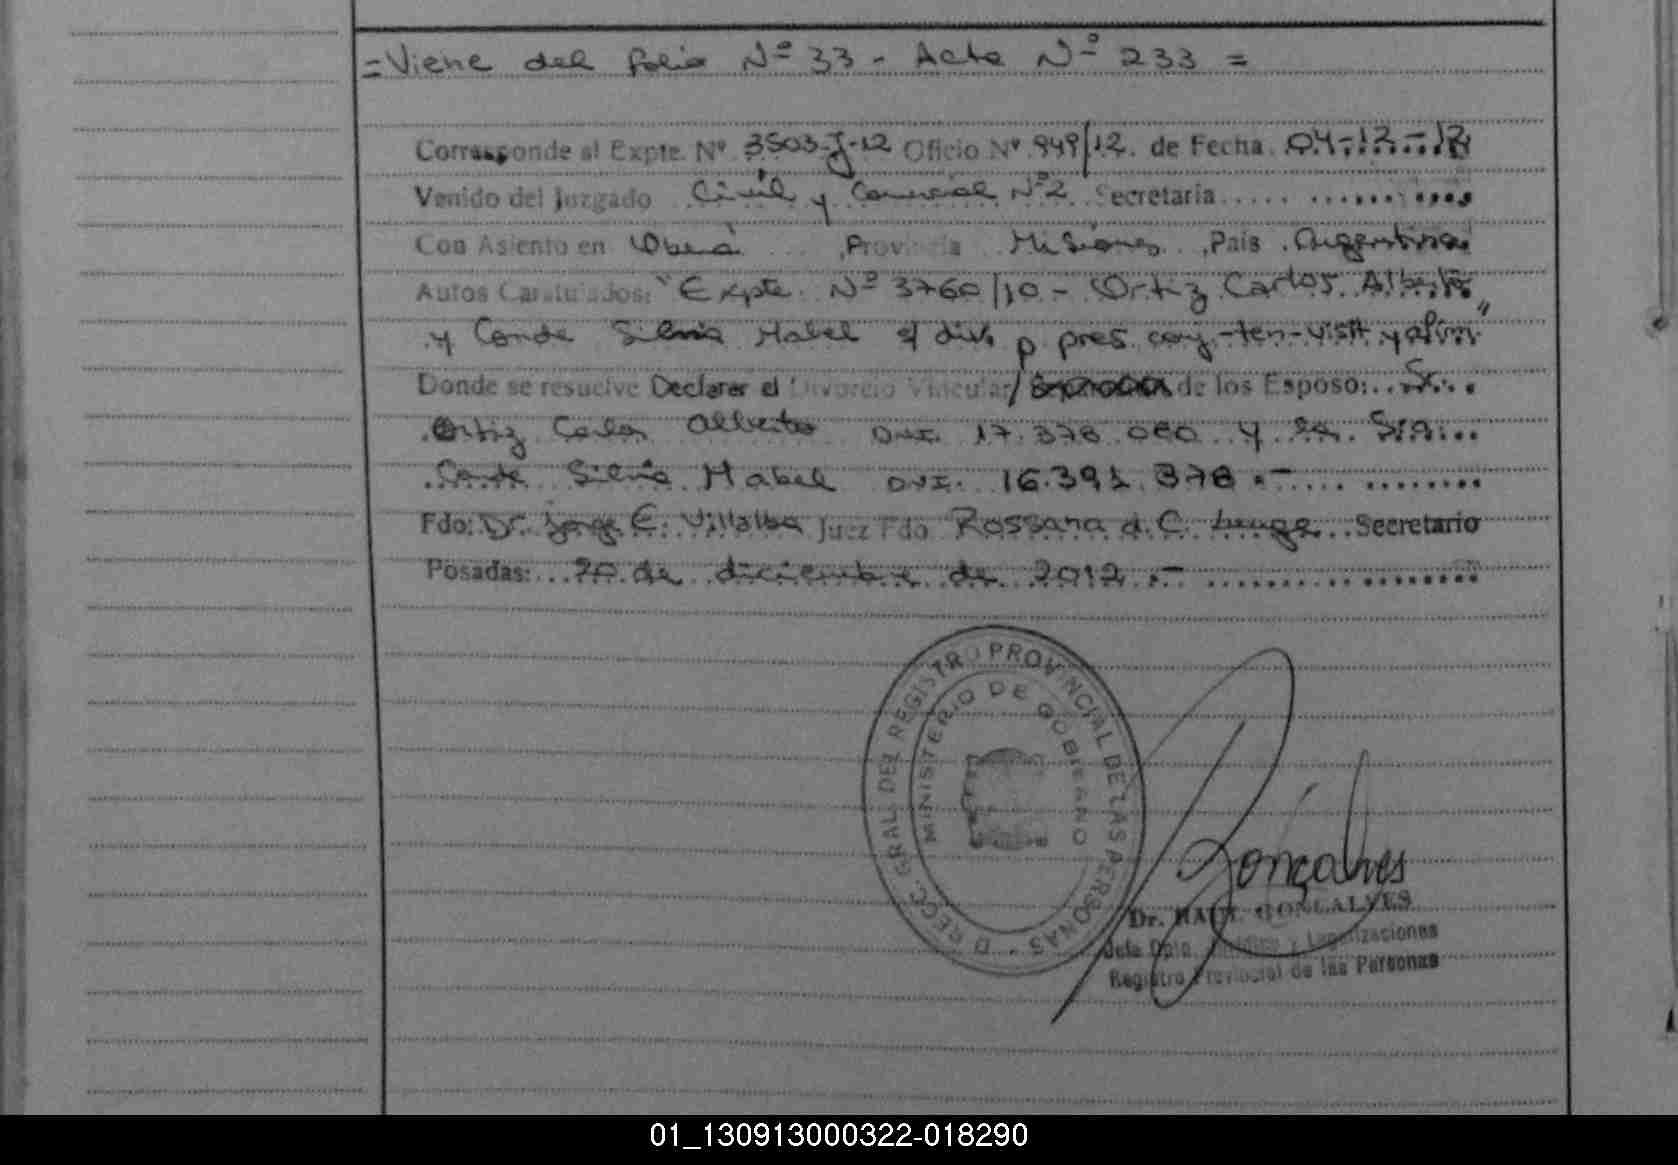 =Viene del folio Nº 33 - Acta Nº 233 =
Corresponde al Expte. Nº 3503-J-12 Oficio Nº 949/12. de Fecha 04-12-12
Venido del Juzgado Civil y Comercial Nº2 Secretaria
Con Asiento en Oberá Provincia Misiones País Argentina
Autos Caratulados: "Expte. Nº 3760/10 - Ortiz Carlos Alberto
y Conde Silvia Mabel s/ div. p pres. conj.-ten-visit y alim"
Donde se resuelve Declarar el Divorcio Vincular/ de los Esposo: Sr.
Ortiz Carlos Alberto DNI. 17.378.080 y la Sra.
Conde Silvia Mabel DNI. 16.391.378.-
Fdo: Dr. Jorge E. Villalba Juez Fdo Rossana d. C. Secretario
Posadas: 20 de diciembre de 2012.-
DIRECC. GRAL. DEL REGISTRO PROVINCIAL DE LAS PERSONAS -
MINISTERIO DE GOBIERNO
Gonçalves
Dr. RAUL GONCALVES
Jefe Dpto. Jurídico y Legalizaciones
Registro Provincial de las Personas
01_130913000322-018290